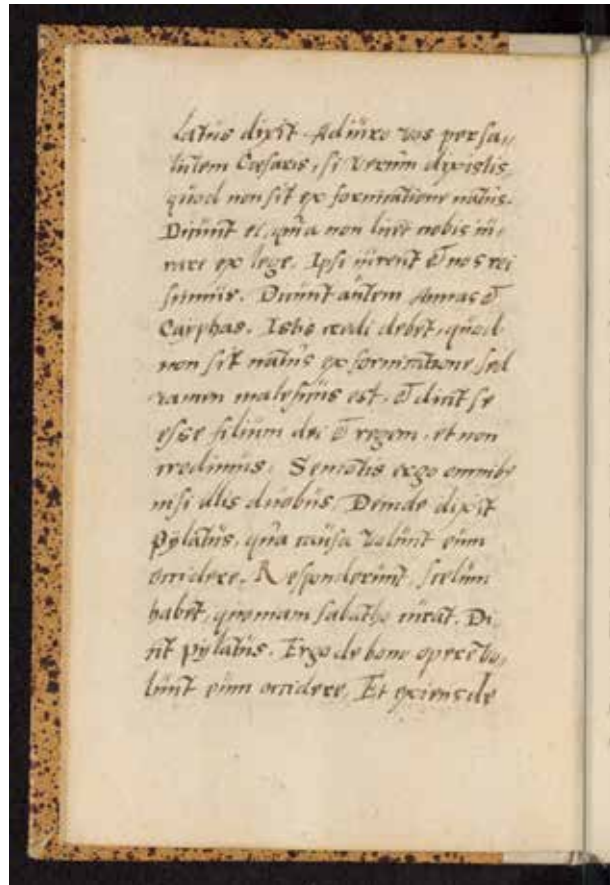 latus dixit. Adiuro vos per sa„
lutem Cæsaris, si verum dixistis,
quod non sit ex fornicatione natus.
Dicunt ei, quia non licet nobis iu,
rare ex lege. Ipsi iurent & nos rei
sumus. Dicunt autem Annas &
Cayphas. Istis credi debet, quod
non sit natus ex fornicatione, sed
tamen maleficus est. & dicit se
esse filium dei & regem, et non
credimus. Semotis ergo omnibꝰ
nisi illis duobus. Deinde dixit
Pylatus, qua causa volunt eum
occidere. Responderunt, scelum
habet, quoniam sabatho curat. Di,
xit pylatus. Ergo de bono opere vo,
lunt eum occidere, Et exiens de